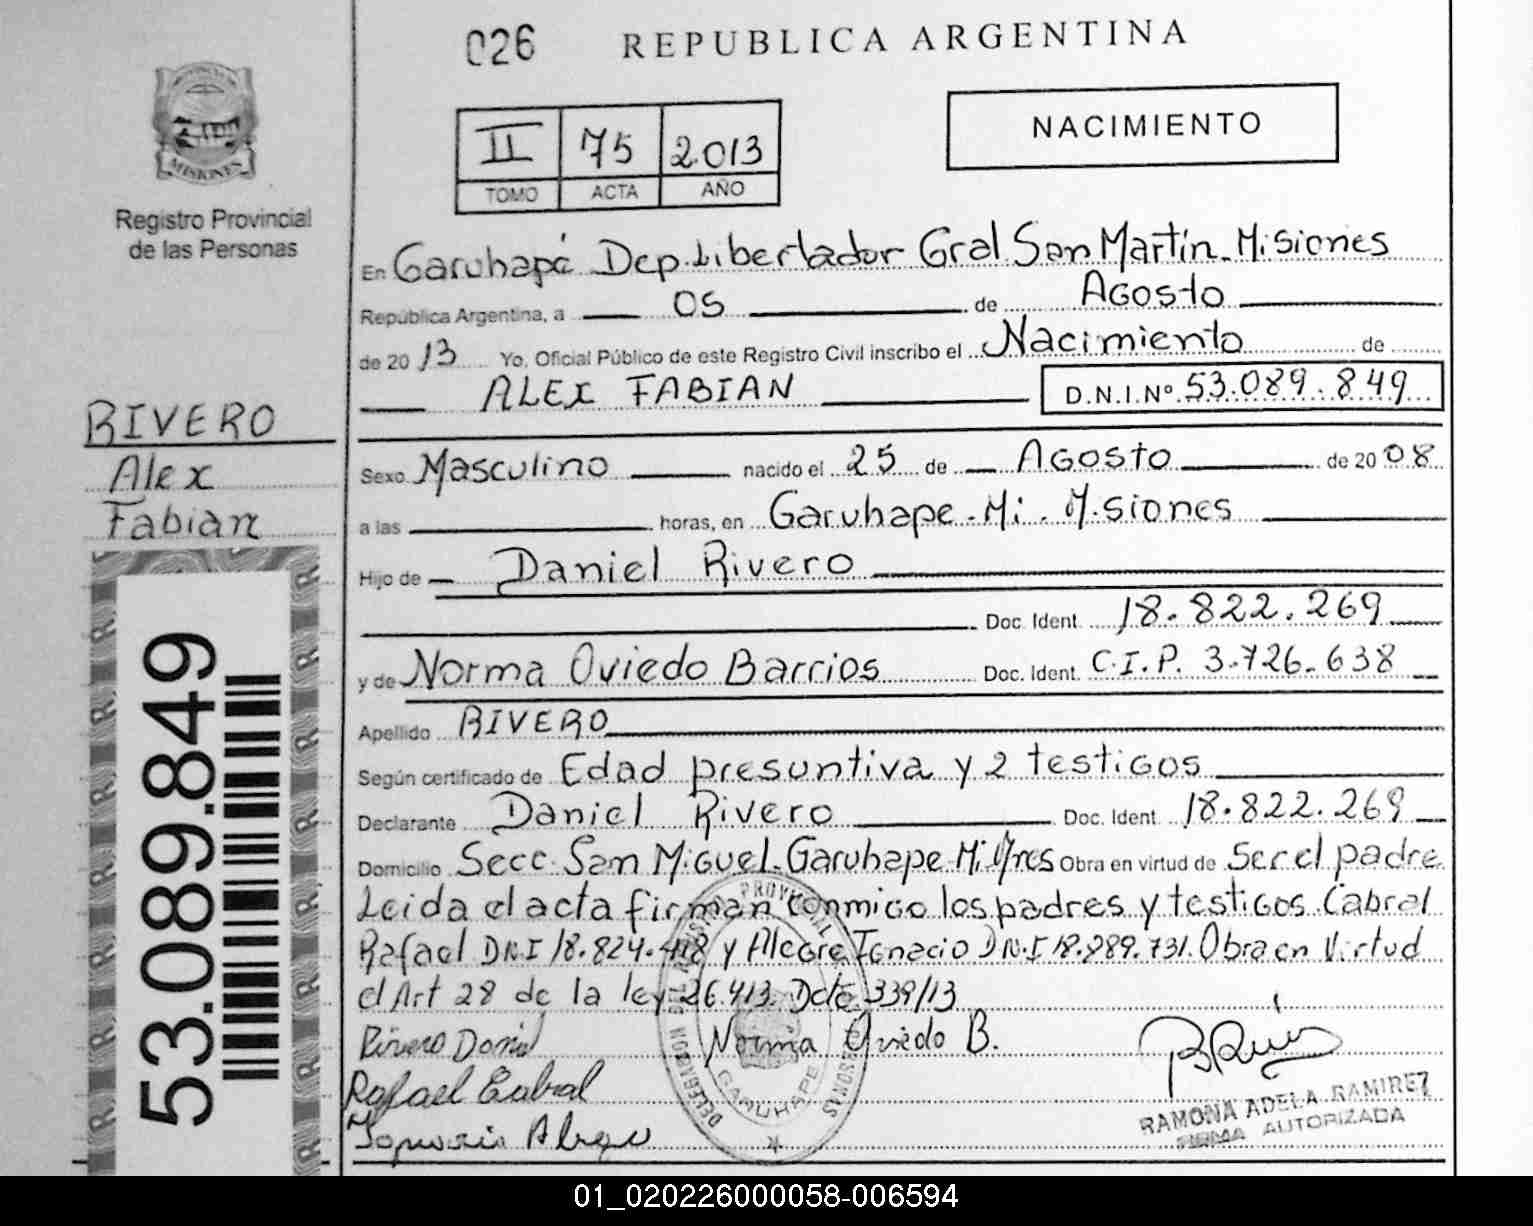 026 REPUBLICA ARGENTINA
II 75 2013
TOMO ACTA AÑO
NACIMIENTO
MISIONES
Registro Provincial
de las Personas
RIVERO
Alex
Fabian
53.089.849
En Garuhapé Dep. Libertador Gral San Martín. Misiones
República Argentina, a 05 de Agosto
de 20 13 Yo, Oficial Público de este Registro Civil inscribo el Nacimiento de
ALEX FABIAN D.N.I.Nº 53.089.849
Sexo Masculino nacido el 25 de Agosto de 20 08
a las horas, en Garuhape-Mi. Misiones
Hijo de Daniel Rivero
Doc. Ident. 18.822.269
y de Norma Oviedo Barrios Doc. Ident. C.I.P. 3.726.638
Apellido RIVERO
Según certificado de Edad presuntiva y 2 testigos
Declarante Daniel Rivero Doc. Ident. 18.822.269
Domicilio Secc. San Miguel. Garuhape-Mi Obra en virtud de Ser el padre
Leida el acta firman conmigo los padres y testigos Cabral
Rafael DNI y Alegre Ignacio DNI Obra en Virtud
el Art 28 de la ley 26.413. Dcto 339/13
Rivero Daniel Norma Oviedo B.
Rafael Cabral
RAMONA ADELA RAMIREZ
FIRMA AUTORIZADA
GARUHAPE
01_020226000058-006594